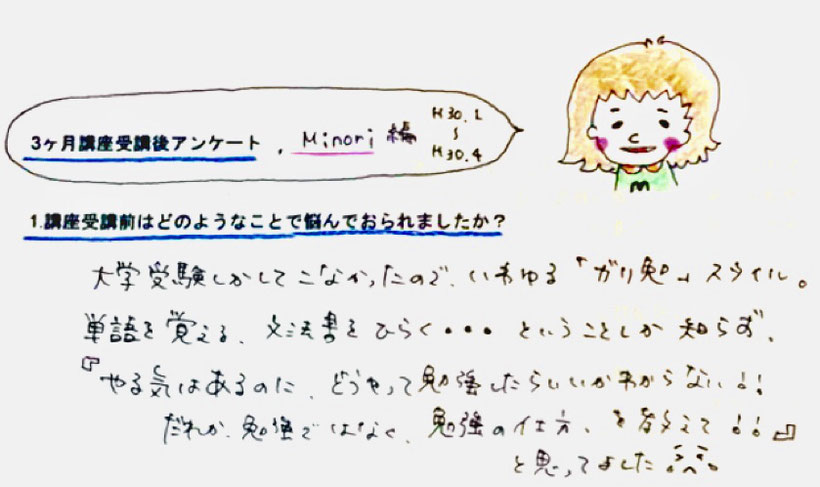 3ヶ月講座受講後アンケート, Minori 編 H30.1 〜 H30.4
m
1.講座受講前はどのようなことで悩んでおられましたか？
大学受験しかしてこなかったので、いわゆる「ガリ勉」スタイル。
単語を覚える、文法書をひらく・・・ということしか知らず、
『やる気はあるのに、どうやって勉強したらいいかわからない！！
だれか、勉強ではなく、勉強の仕方、を教えて！！』
と思ってました